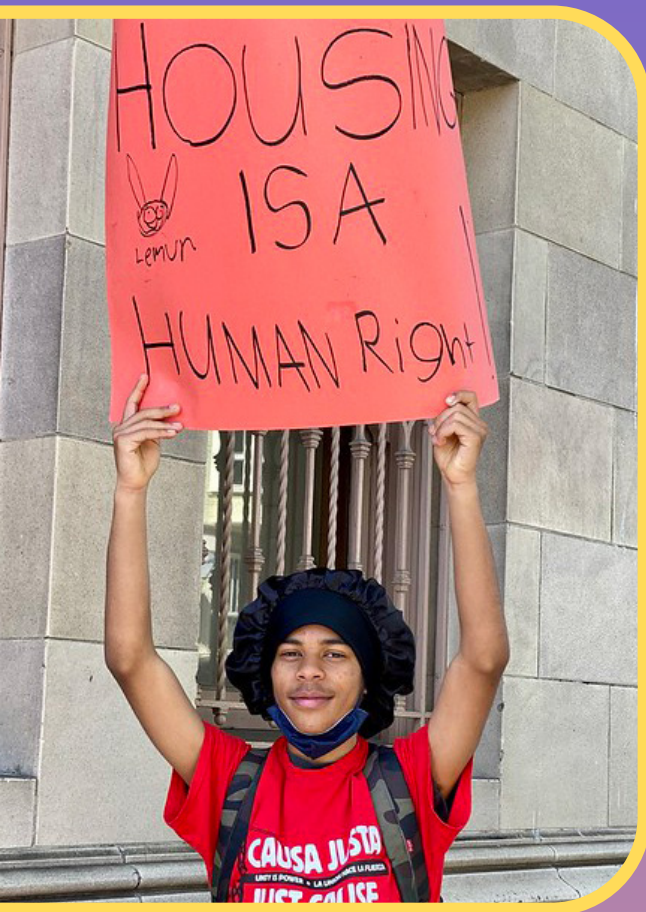 HOUSING
IS A
Lemur
HUMAN Right!
CAUSA JUSTA
UNITY IS POWER • LA UNION HACE LA FUERZA
JUST CAUSE